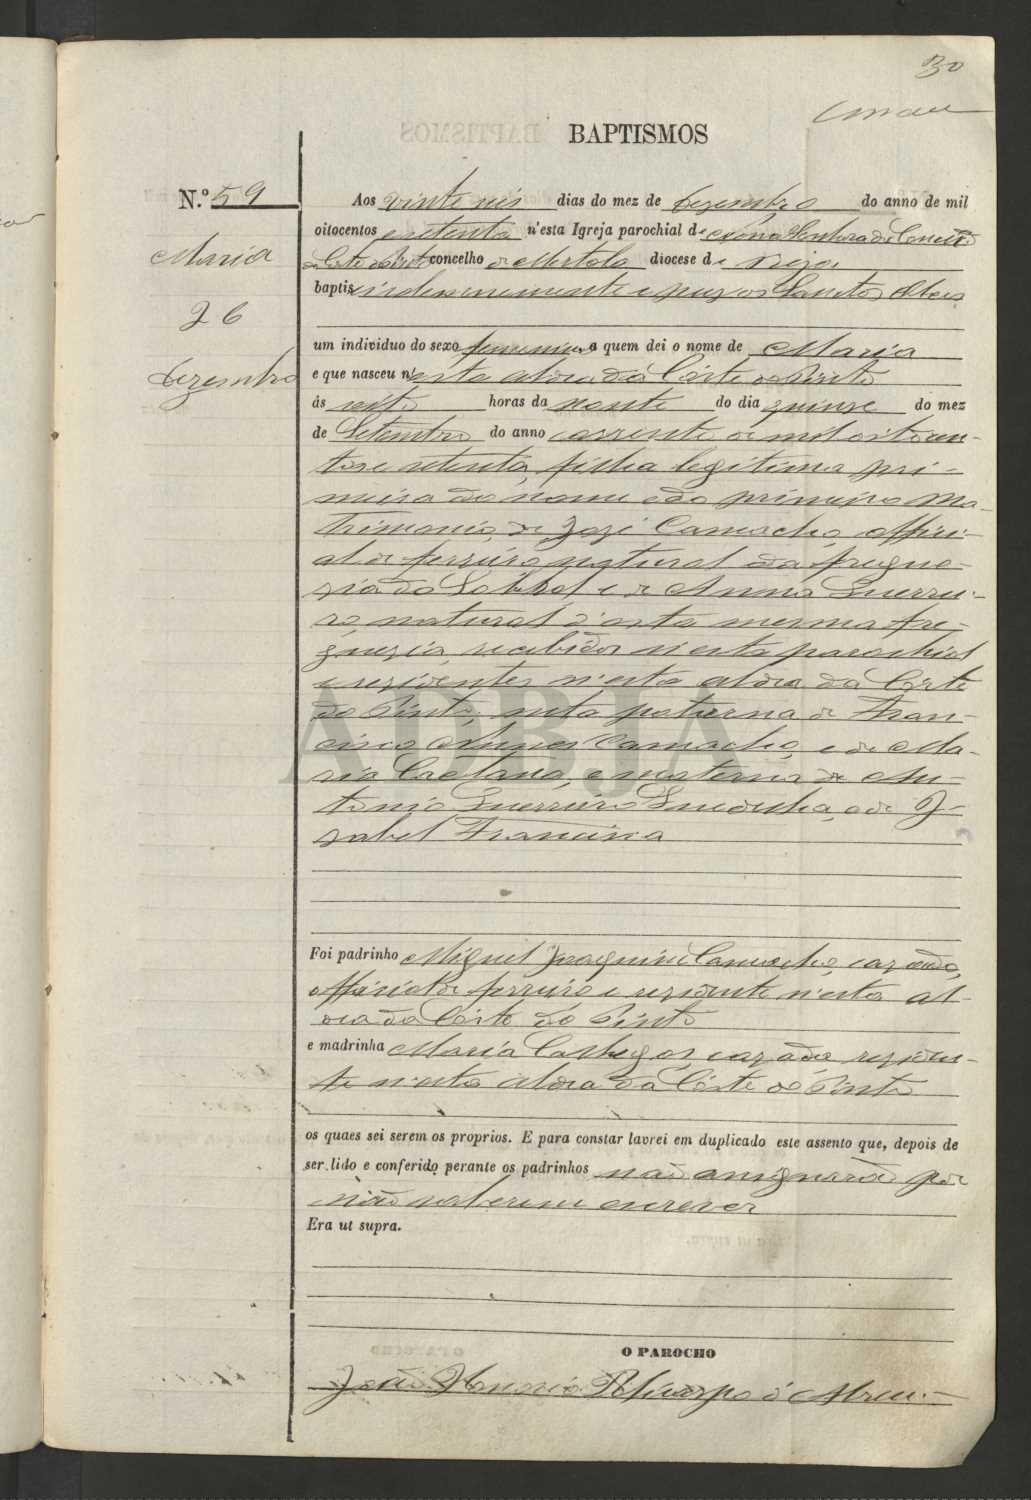 30
BAPTISMOS
N.º 59
Maria
26
Dezembro
Aos vinte seis dias do mez de Dezembro do anno de mil
oitocentos e setenta n'esta Igreja parochial de Nossa Senhora da Conceição
da Corte do Pinto concelho de Mertola diocese de Beja
baptisei solemnemente e puz os Sanctos Oleos
um individuo do sexo femenino a quem dei o nome de Maria
e que nasceu n'esta aldea da Côrte do Pinto
ás oito horas da noute do dia quinze do mez
de Setembro do anno corrente de mil oitocen-
tos e setenta, filha legitima pri-
meira do nome e do primeiro ma-
trimonio, de José Camacho, offici-
al de ferreiro natural da fregue-
zia do Sobral e de Anna Guerrei-
ro, natural d'esta mesma fre-
guezia, recebidos n'esta parochial
e rezidentes n'esta aldea da Côrte
do Pinto, neta paterna de Fran-
cisco Nunes Camacho, e de Ma-
ria Caetana, e materna de An-
tonio Guerreiro e de I-
zabel Francisca
Foi padrinho Miguel Joaquim Camacho, cazado,
official de ferreiro e rezidente n'esta al-
dea da Côrte do Pinto
e madrinha Maria cazada, reziden-
te n'esta aldea da Côrte do Pinto
os quaes sei serem os proprios. E para constar lavrei em duplicado este assento que, depois de
ser lido e conferido perante os padrinhos não assignarão por
não saberem escrever
Era ut supra.
O PAROCHO
João Policarpo d'Abreu
ADBJA